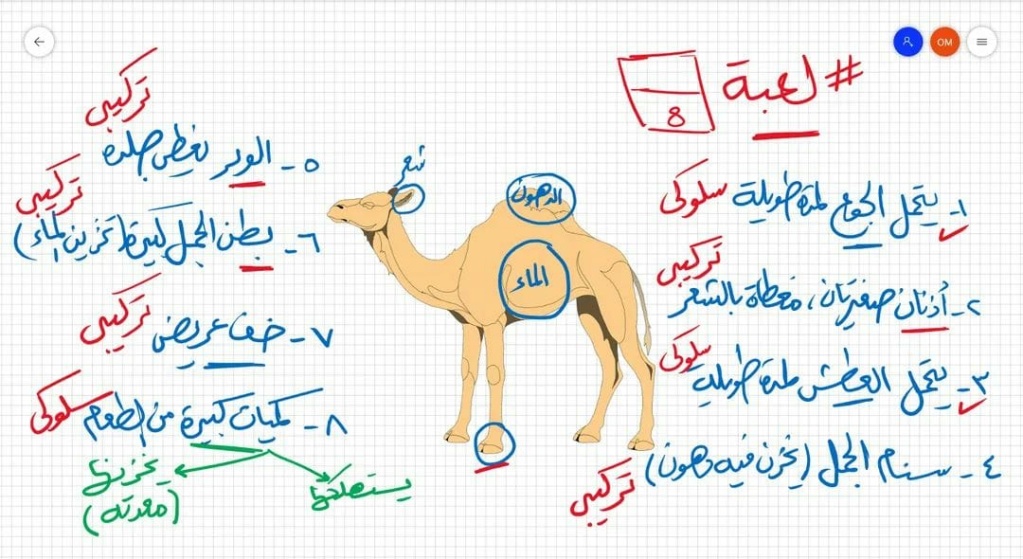 OM
# لعبة
8
١- يتحمل الجوع لمدة طويلة سلوكي
٢- أذنان صغيرتان، مغطاة بالشعر تركيبي
٣- يتحمل العطش لمدة طويلة سلوكي
٤- سنام الجمل (يخزن فيه دهون) تركيبي
شعر
الدهون
الماء
٥- الوبر يغطي جلده تركيبي
٦- بطن الجمل كبيرة (تخزين الماء) تركيبي
٧- خف عريض تركيبي
٨- كميات كبيرة من الطعام سلوكي
يستهلكها
يخزنها
(معدته)